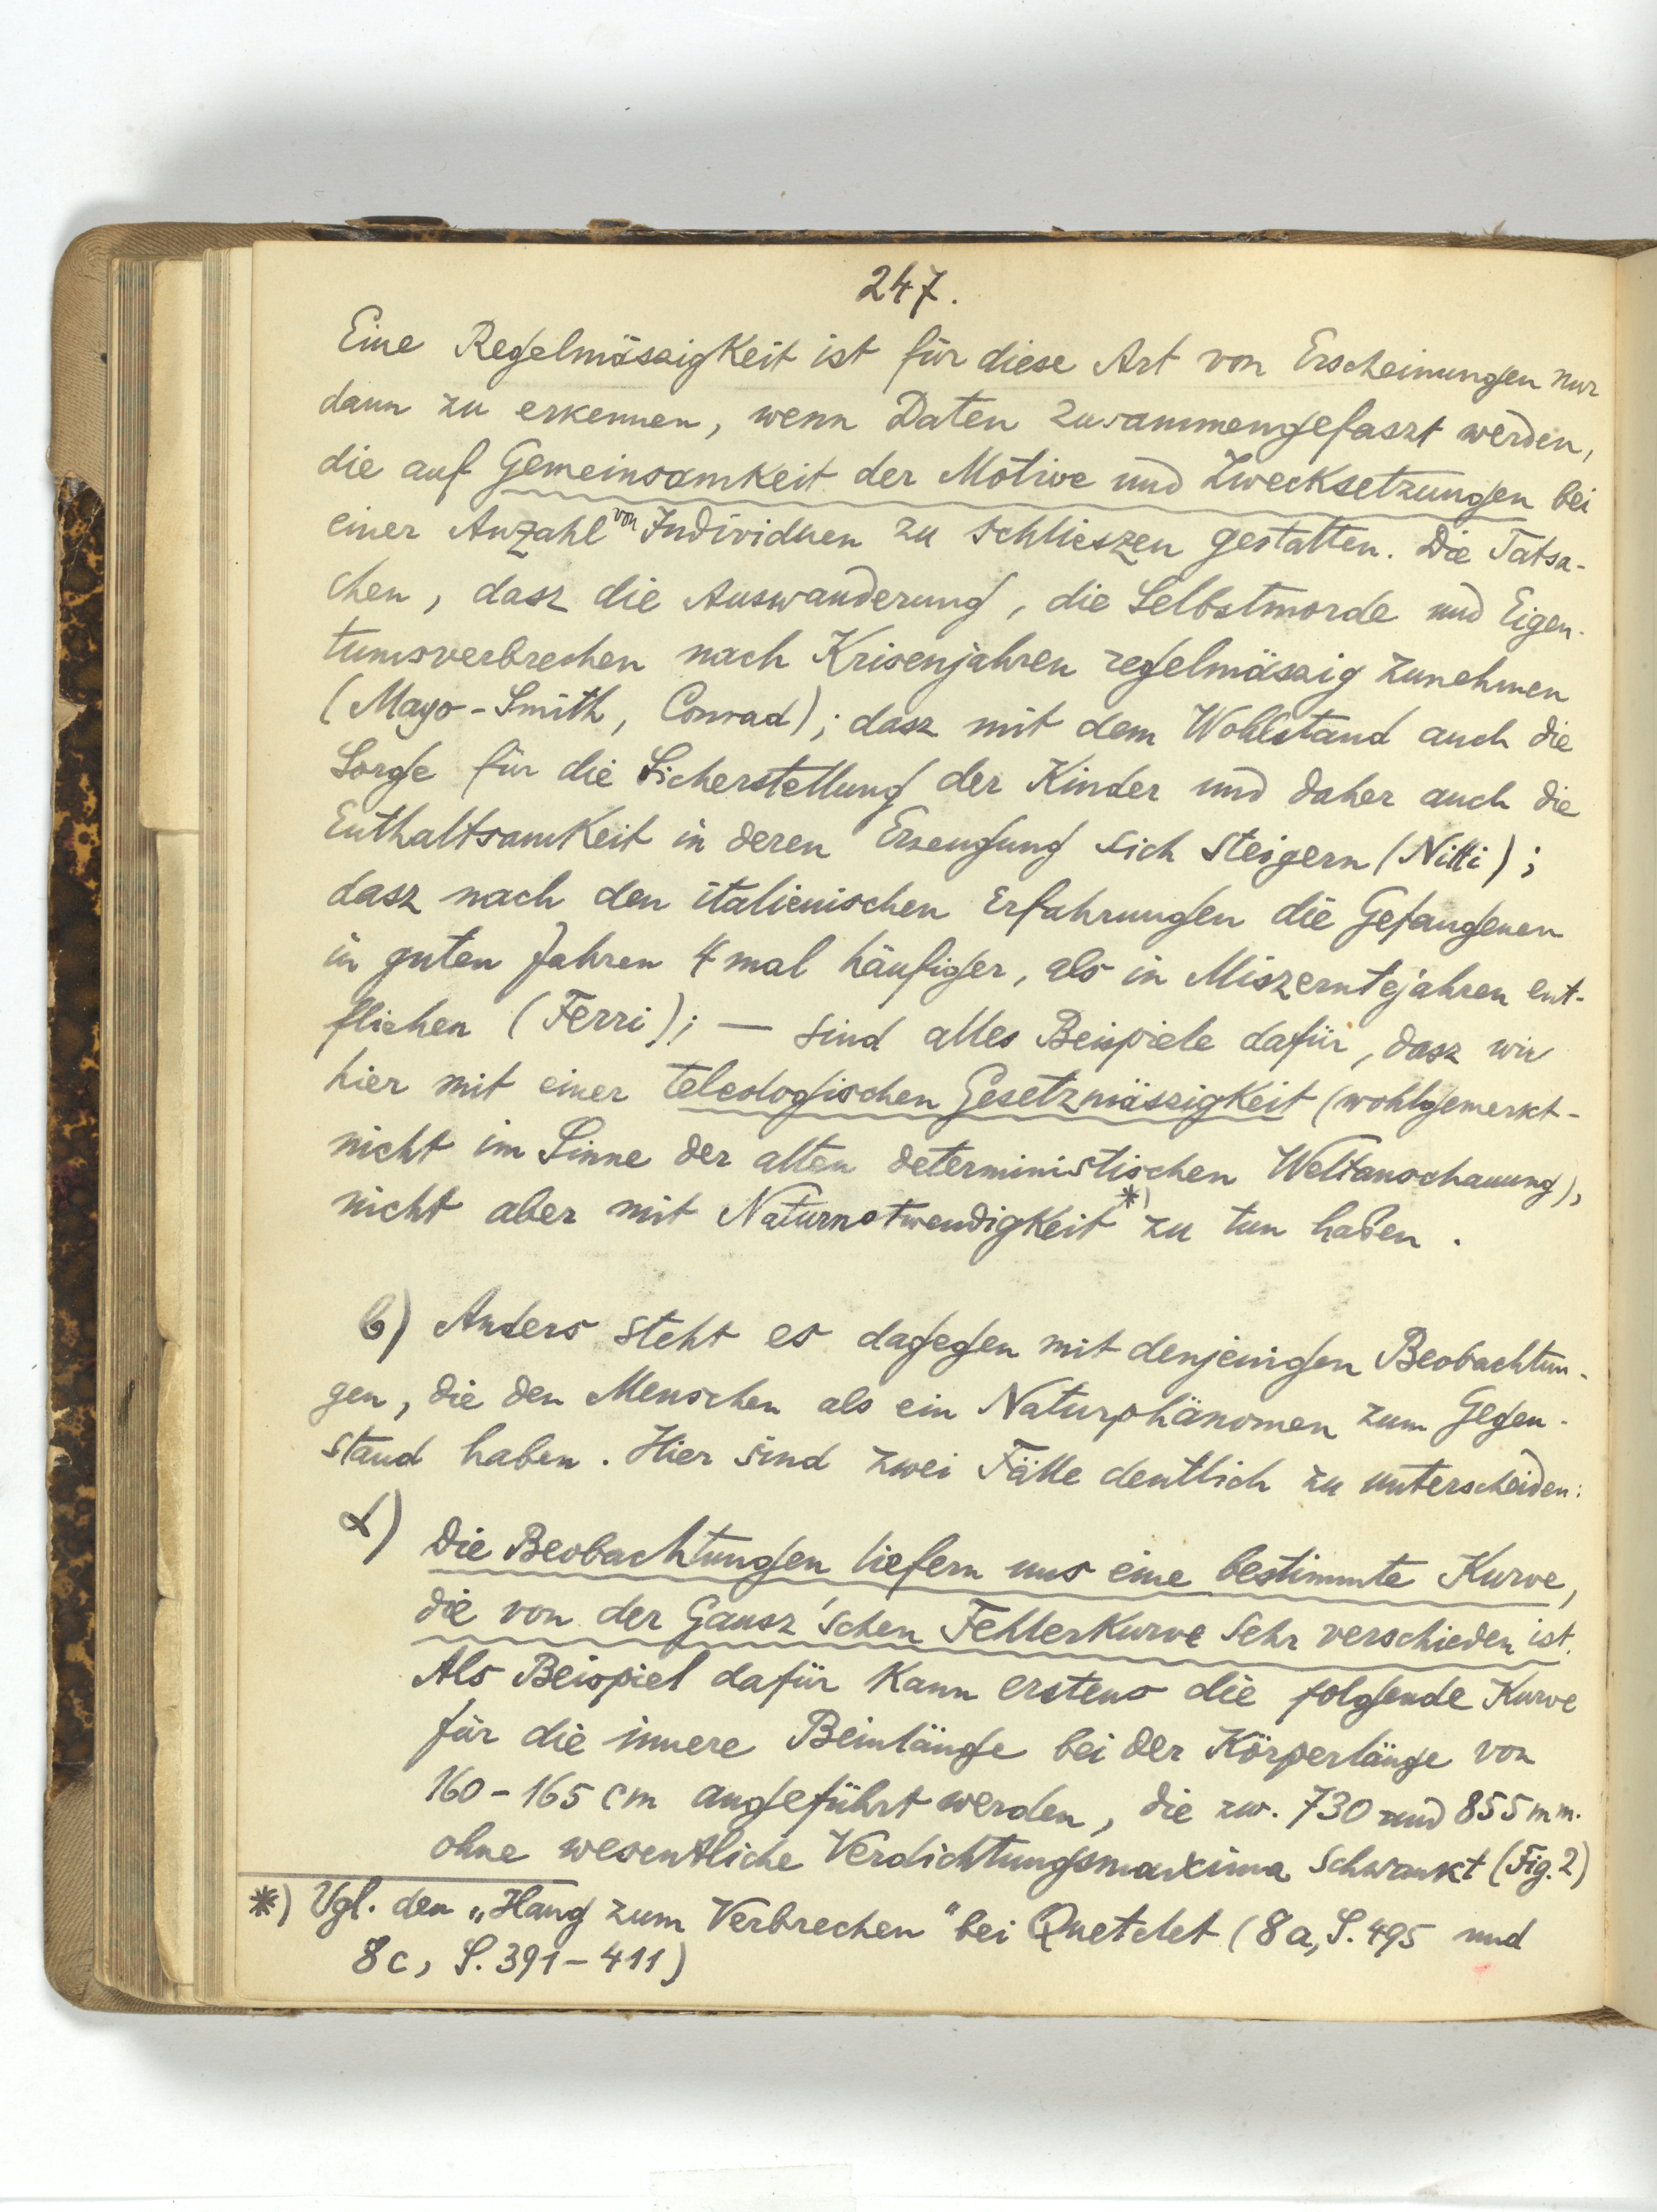 247.
Eine Regelmässigkeit ist für diese Art von Erscheinungen nur
dann zu erkennen, wenn Daten zusammengefaszt werden,
die auf Gemeinsamkeit der Motive und Zwecksetzungen bei
einer Anzahl von Individuen zu schlieszen gestatten. Die Tatsa-
chen, dasz die Auswanderung, die Selbstmorde und Eigen-
tumsverbrechen nach Krisenjahren regelmässig zunehmen
(Mayo-Smith, Conrad); dasz mit dem Wohlstand auch die
Sorge für die Sicherstellung der Kinder und daher auch die
Enthaltsamkeit in deren Erzeugung sich steigern (Nitti);
dasz nach den italienischen Erfahrungen die Gefangenen
in guten Jahren 4 mal häufiger, als in Miszerntejahren ent-
fliehen (Ferri); — sind alles Beispiele dafür, dasz wir
hier mit einer teleologischen Gesetzmässigkeit (wohlgemerkt -
nicht im Sinne der alten deterministischen Weltanschauung),
nicht aber mit Naturnotwendigkeit *) zu tun haben.
b) Anders steht es dagegen mit denjenigen Beobachtun-
gen, die den Menschen als ein Naturphänomen zum Gegen-
stand haben. Hier sind zwei Fälle deutlich zu unterscheiden:
α) Die Beobachtungen liefern uns eine bestimmte Kurve,
die von der Gausz'schen Fehlerkurve sehr verschieden ist.
Als Beispiel dafür kann erstens die folgende Kurve
für die innere Beinlänge bei der Körperlänge von
160-165 cm angeführt werden, die zw. 730 und 855 mm.
ohne wesentliche Verdichtungsmaxima schwankt (Fig. 2)
*) Vgl. den „Hang zum Verbrechen" bei Quetelet (8a, S. 495 und
8c, S. 391-411)